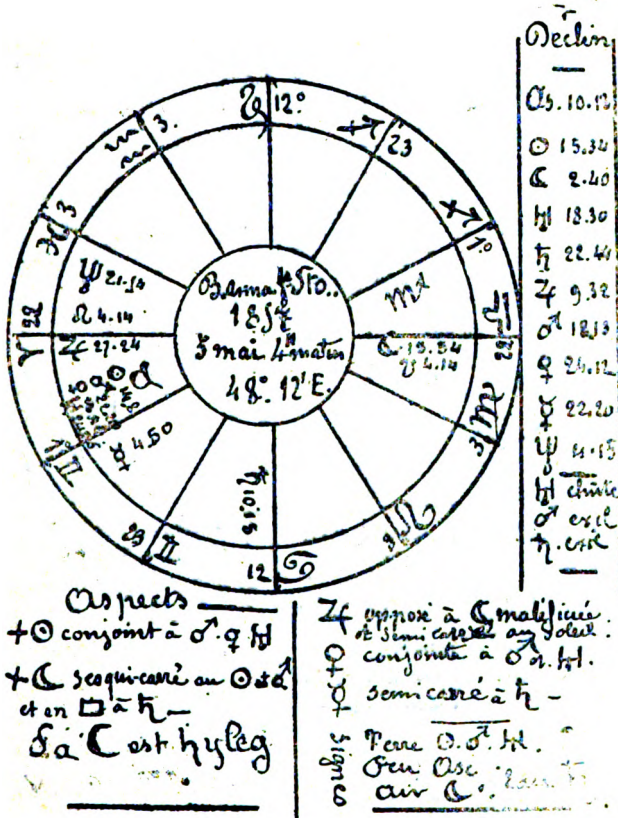 Déclin
As. 10.12
☉ 15.34
☾ 2.40
♅ 18.30
♄ 22.44
♃ 9.32
♂ 18.13
♀ 24.12
☿ 22.20
♆ 4.15
♅ chûte
♂ exil
♄ exil
♑ 12°
♐ 23
♐ 1°
♎ 22
♍ 3
♌ 3
♋ 12
♊ 23
♊
♈ 22
♓ 3
♒ 3.
♆ 21.14
☊ 4.14
♃ 27.24
☿ 4.50
♄ 10.13
☾ 13.34
☋ 4.14
1857
5 mai 4h matin
48° 12' E.
Aspects
+ ☉ conjoint à ♂ ♀ ♅
+ ☾ sesqui-carré au ☉ et ♂
et en □ à ♄ —
La ☾ est hyleg
♃ opposé à ☾ maléficiée
et semi carré au soleil.
♀ conjointe à ♂ et ♅.
+ ☿ semi carré à ♄ —
Signes
Terre ☉. ♂ ♅.
Feu Asc
air ☾.